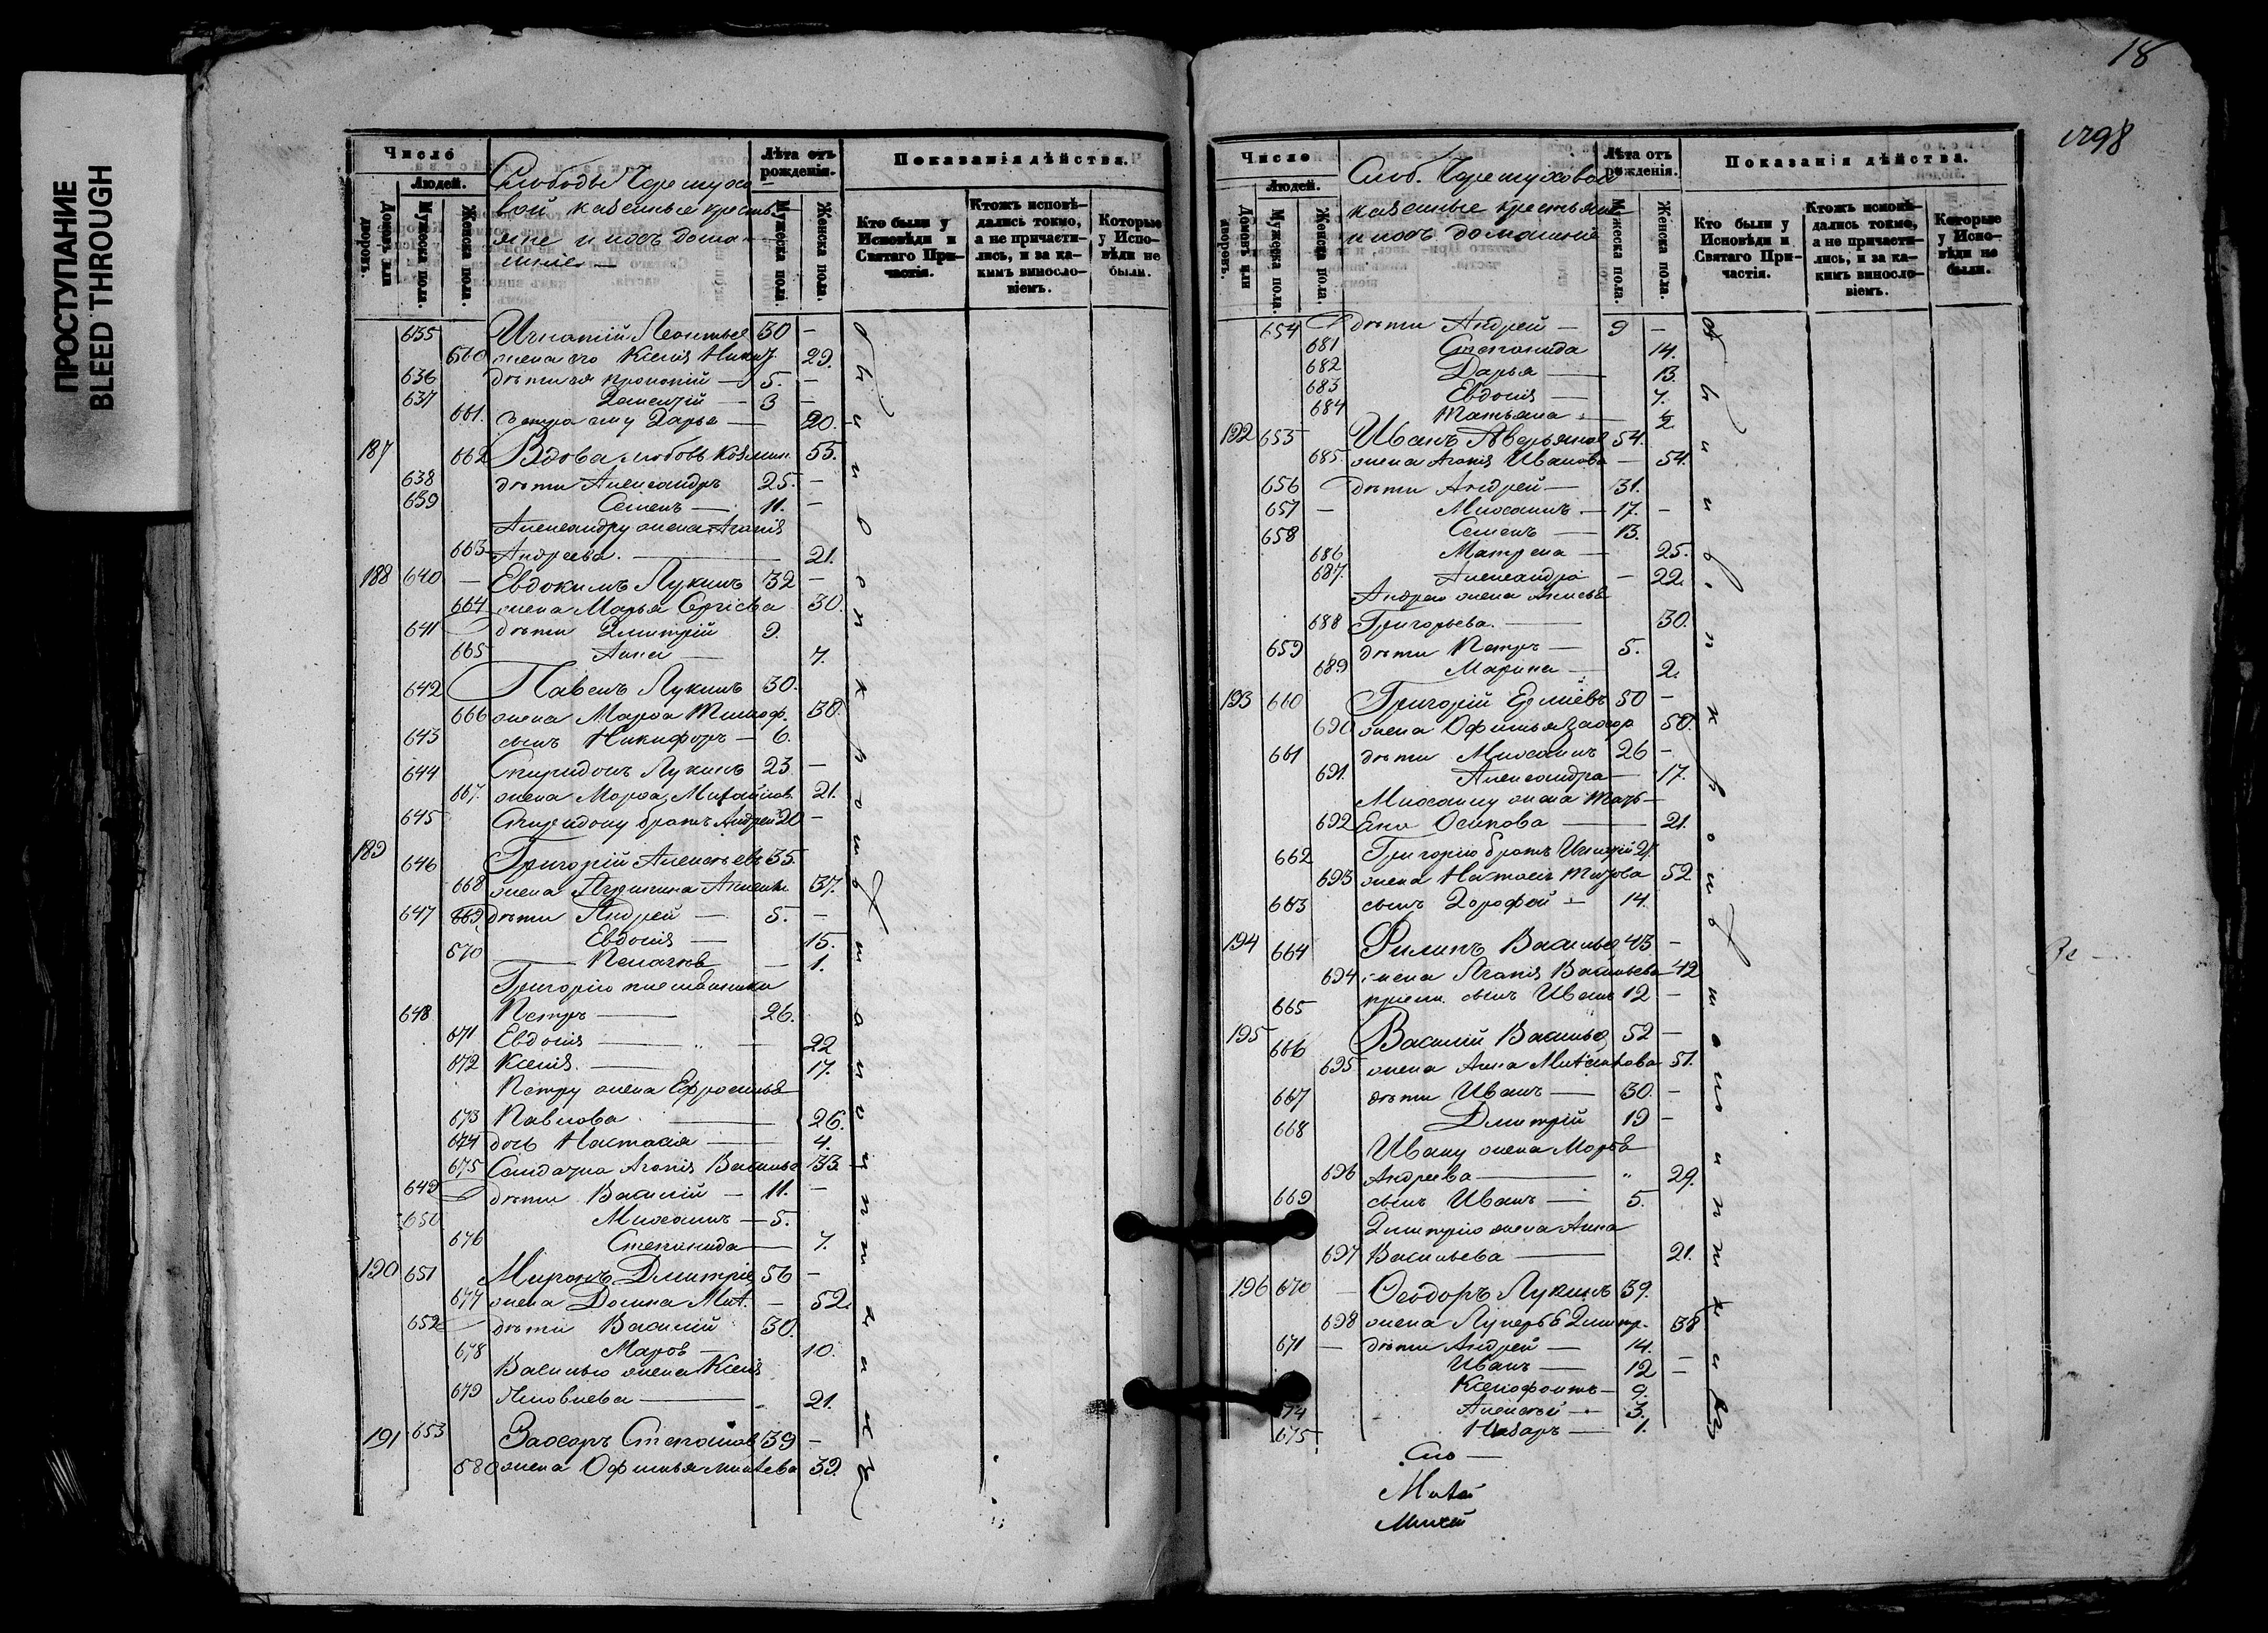 ПРОСТУПАНИЕ
BLEED THROUGH
Число
Людей.
Домовъ или дворовъ.
Мужеска пола.
Женска пола.
Слободы Черемухо-
вой казенные крестья-
яне и ихъ дома-
шніе
Лѣта отъ рожденія.
Мужеска пола.
Женска пола.
Показанія дѣйства.
Кто были у Исповѣди и Святаго Причастія.
Ктожъ исповѣдались токмо, а не причастились, и за какимъ винословіемъ.
Которые у Исповѣди не были.
635 Игнатій Леонтьев 30 –
660 жена его Ксенія 29.
636 дѣти ея Прокопій – 5. –
637 – 3 –
661. сестра ему Дарья – 20.
187 662 Вдова любовь Козмин. 55.
638 дѣти Александръ 25. –
639 Семенъ – 11. –
Александру жена Агапія
663 Андреева. – 21.
188 640 – Евдокимъ Лукинъ 32 –
664 жена Марья Сергіева 30.
641 дѣти Дмитрій 9.
665 Анна – 7.
642 Павелъ Лукинъ 30.
666 жена Марфа Тимоф. 30.
643 сынъ Никифоръ – 6.
644 Спиридонъ Лукинъ 23 –
667. жена Марфа Михайлов. 21.
645 Спиридону братъ Андрей 20 –
189 646 Григорій Алексѣевъ 35.
668 жена 37.
647 669 дѣти Андрей – 5. –
Евдокія – 15.
670 Пелагія – 1.
Григорію племянники
648 Петръ – 26.
671 Евдокія – 22
672 Ксенія. – 17.
Петру жена Ефросинья
673 Павлова – 26.
674 дочь Настасія – 4.
675 Солдатка Агапія Васильев 33
649 дѣти Василій – 11. –
650 Михаилъ – 5.
676 Степанида – 7.
190 651 Миронъ Дмитріев 56 –
677 жена Домна Мит. – 52.
652 дѣти Василій 30.
678 Марфа – 10.
Василью жена Ксенія
679 Яковлева – 21.
191 653 Захаръ Степанов 39 –
680 жена Офимья 39.
18
1798
Число
Людей.
Домовъ или дворовъ.
Мужеска пола.
Женска пола.
Слоб. Черемуховой
казенные крестьяне
и ихъ домашніе
Лѣта отъ рожденія.
Мужеска пола.
Женска пола.
Показанія дѣйства.
Кто были у Исповѣди и Святаго Причастія.
Ктожъ исповѣдались токмо, а не причастились, и за какимъ винословіемъ.
Которые у Исповѣди не были.
654 дѣти Андрей – 9 –
681 Степанида 14.
682 Дарья – 13.
683 Евдокія – 7.
684 Татьяна – 2.
192 655 Иванъ Аверьянов 54.
685. жена Агапія Иванова – 54.
656 дѣти Андрей – 31.
657 – Михаилъ – 17. –
658 Семенъ – 13.
686 Матрена – 25.
687. Александра – 22.
Андрею жена Анисья
688 Григорьева. – 30.
659 дѣти Петръ – 5.
689 Марина – 2.
193 660 Григорій 50 –
690 жена Офимья Захар 50.
661 дѣти Михаилъ 26 –
691. Александра – 17.
Михаилу жена Катѣ-
692 рина Осипова – 21.
662 Григорію братъ
693 жена Настасія 52
663 сынъ Дорофей – 14.
194 664 Филипъ Васильев 43 –
694 жена Агапія Васильева 42
665 прием. сынъ Иванъ 12 –
195 666 Василій Васильев 52 –
695 жена Анна 51.
667 дѣти Иванъ – 30. –
668 Дмитрій 19 –
Ивану жена Марфа
696 Андреева – 29.
669 сынъ Иванъ – 5.
Дмитрію жена Анна
697 Васильева – 21.
196 670 – Ѳеодоръ Лукинъ 39.
698 жена Лукерья Дмитр. 38
671 – дѣти Андрей – 14.
Иванъ – 12 –
Ксенофонтъ – 9.
74 Алексѣй – 3.
675 Назаръ – 1.